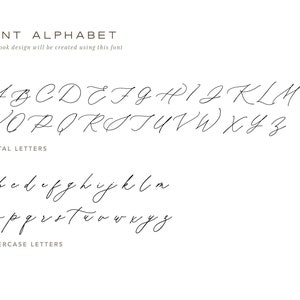 NT ALPHABET
ook design will be created using this font
A B C D E F G H I J K L M
N O P Q R S T U V W X Y Z
TAL LETTERS
b c d e f g h i j k l m
o p q r s t u v w x y z
ERCASE LETTERS